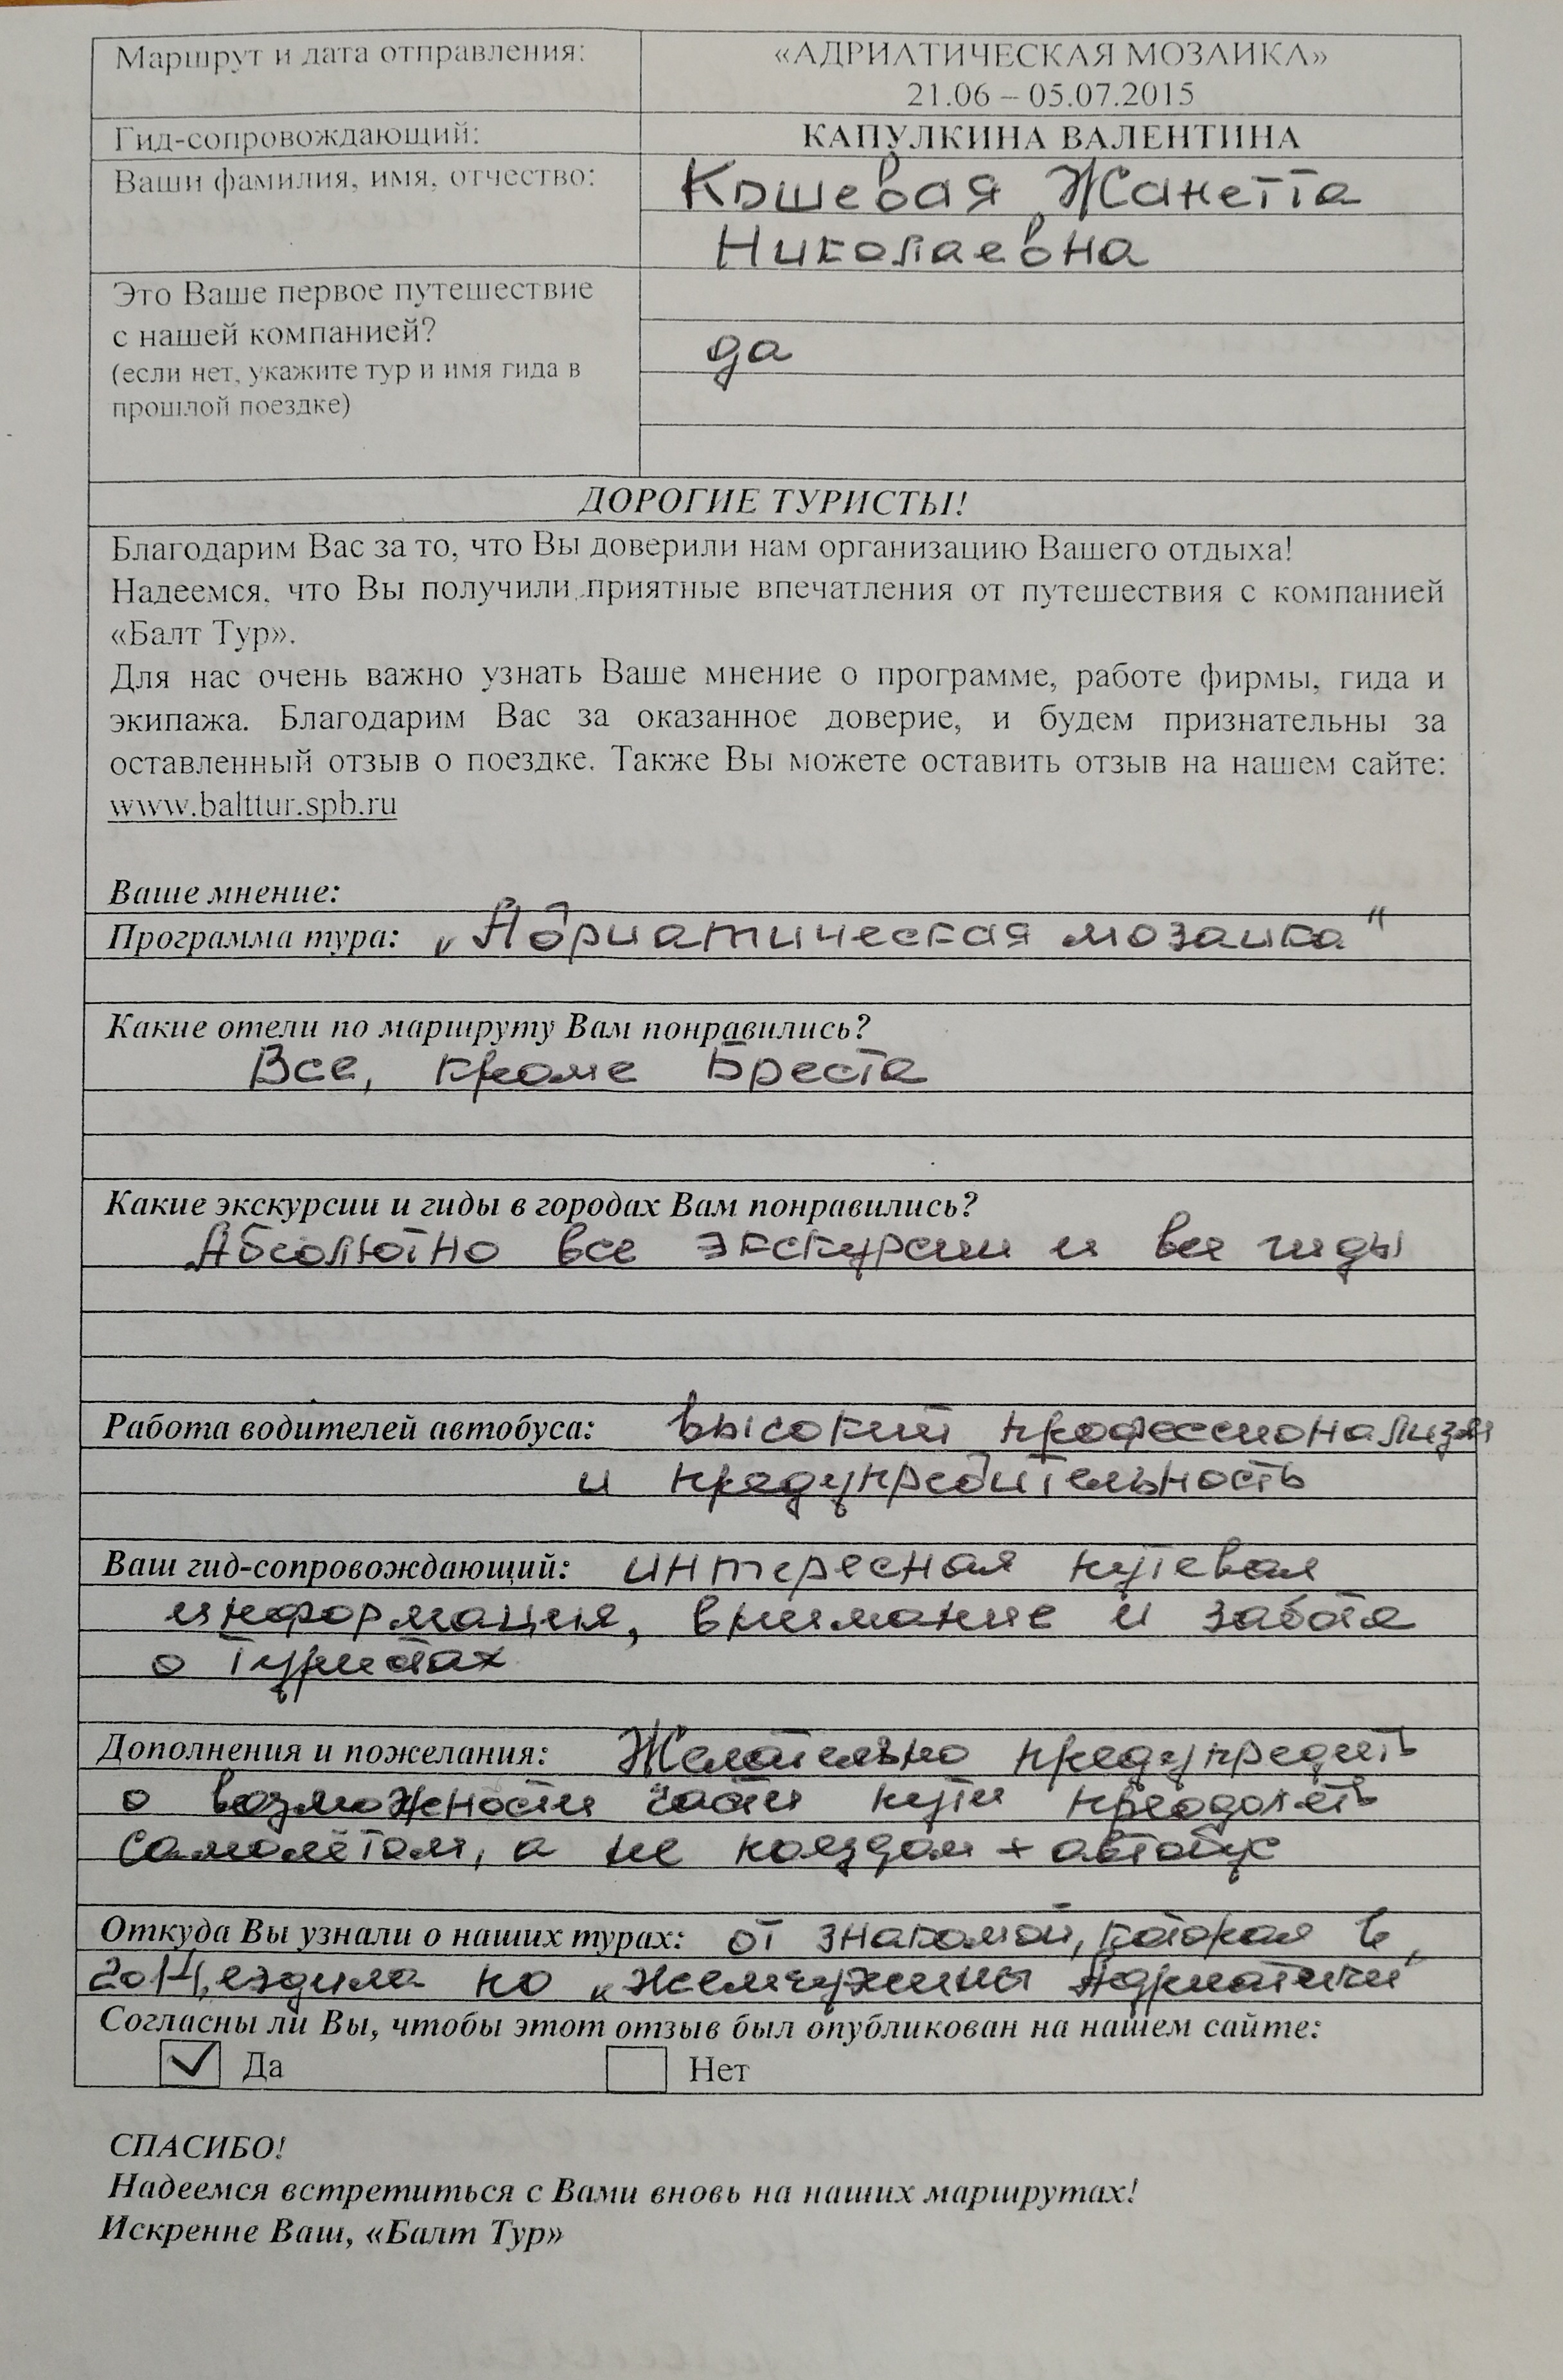 Маршрут и дата отправления:
«АДРИАТИЧЕСКАЯ МОЗАИКА»
21.06 – 05.07.2015
Гид-сопровождающий:
КАПУЛКИНА ВАЛЕНТИНА
Ваши фамилия, имя, отчество:
Кошевая Жанетта
Николаевна
Это Ваше первое путешествие
с нашей компанией?
(если нет, укажите тур и имя гида в
прошлой поездке)
да
ДОРОГИЕ ТУРИСТЫ!
Благодарим Вас за то, что Вы доверили нам организацию Вашего отдыха!
Надеемся, что Вы получили приятные впечатления от путешествия с компанией
«Балт Тур».
Для нас очень важно узнать Ваше мнение о программе, работе фирмы, гида и
экипажа. Благодарим Вас за оказанное доверие, и будем признательны за
оставленный отзыв о поездке. Также Вы можете оставить отзыв на нашем сайте:
www.balttur.spb.ru
Ваше мнение:
Программа тура: „Адриатическая мозаика“
Какие отели по маршруту Вам понравились?
Все, кроме Бреста
Какие экскурсии и гиды в городах Вам понравились?
Абсолютно все экскурсии и все гиды
Работа водителей автобуса: высокий профессионализм
и предупредительность
Ваш гид-сопровождающий: интересная путевая
информация, внимание и забота
о туристах
Дополнения и пожелания: Желательно предупредить
о возможности части пути преодолеть
самолётом, а не поездом + автобус
Откуда Вы узнали о наших турах: от знакомой, которая в
2014, ездила по „Жемчужины Адриатики“
Согласны ли Вы, чтобы этот отзыв был опубликован на нашем сайте:
Да Нет
СПАСИБО!
Надеемся встретиться с Вами вновь на наших маршрутах!
Искренне Ваш, «Балт Тур»